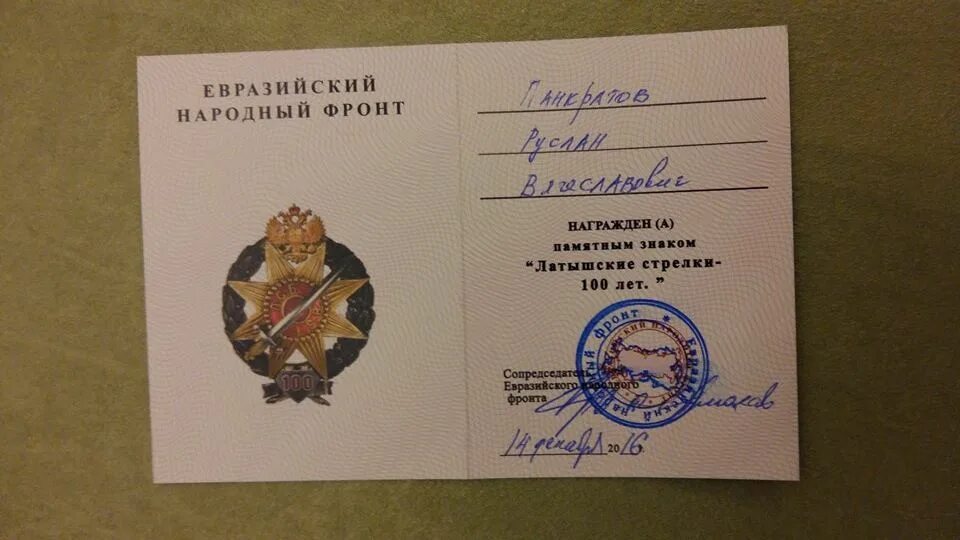 ЕВРАЗИЙСКИЙ
НАРОДНЫЙ ФРОНТ
100
Панкратов
Руслан
Вячеславович
НАГРАЖДЕН (А)
памятным знаком
“Латышские стрелки-
100 лет. ”
Сопредседатель
Евразийского народного
фронта
Евразийский народный фронт
14 декабря 2016